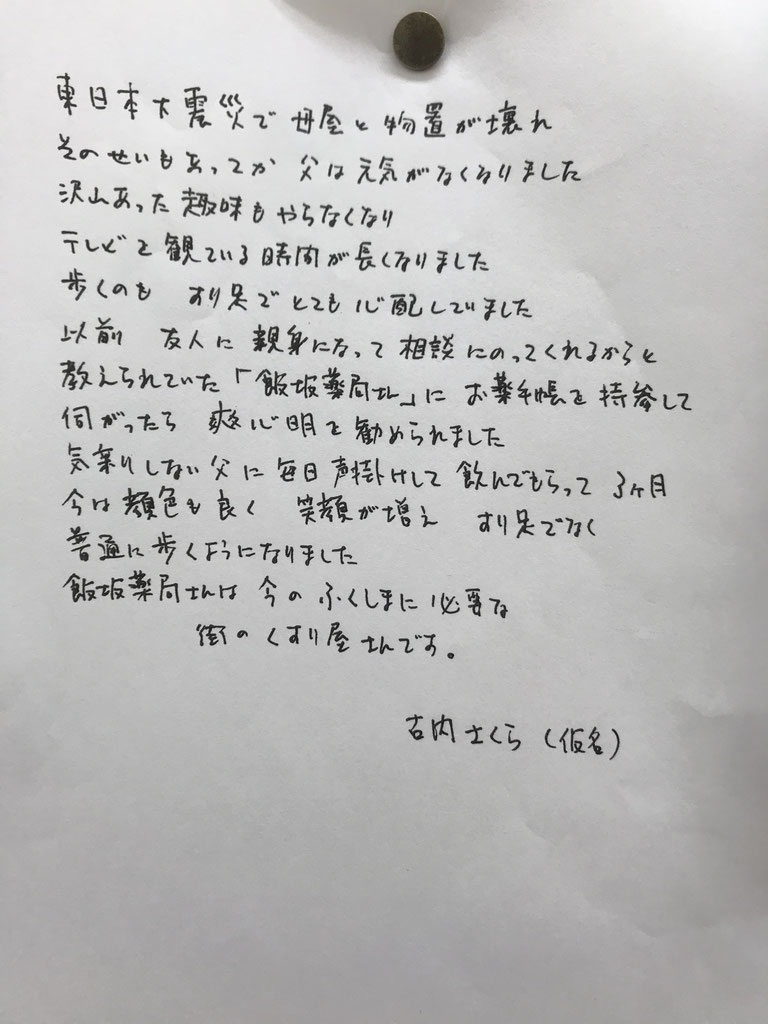 東日本大震災で 母屋と物置が壊れ
そのせいもあってか 父は元気がなくなりました
沢山あった趣味もやらなくなり
テレビを観ている時間が長くなりました
歩くのも すり足でとても心配していました
以前 友人に親身になって相談にのってくれるからと
教えられていた「飯坂薬局さん」に お薬手帳を持参して
伺がったら 爽心明を勧められました
気乗りしない父に毎日声掛けして飲んでもらって 3ヶ月
今は顔色も良く 笑顔が増え すり足でなく
普通に歩くようになりました
飯坂薬局さんは 今の ふくしまに必要な
街のくすり屋さんです。
古内さくら(仮名)